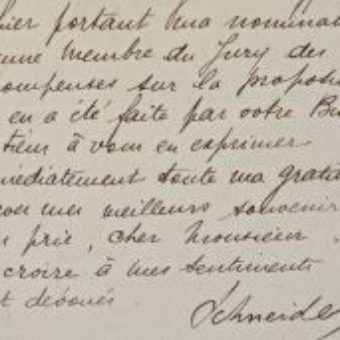 ier portant ma nomina
membre du Jury des
ompenses sur la proposi
en a été faite par votre Bu
tiens à vous en exprimer
médiatement toute ma grati
mes meilleurs souvenir
prie, cher Monsieur
croire à mes sentiments
t dévoués.
Schneide